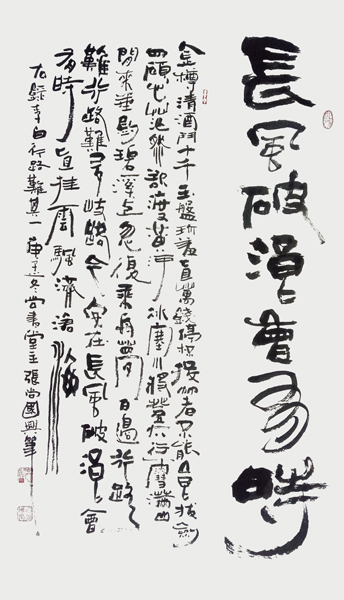 長風破浪會有時
金樽清酒鬥十千玉盤珍羞直萬錢停杯投箸不能食拔劍
四顧心茫然欲渡黃河冰塞川將登太行雪滿山
閒來垂釣碧溪上忽復乘舟夢日邊行路
難行路難多歧路今安在長風破浪會
有時直挂雲帆濟滄海
右錄李白行路難其一庚子冬尚書堂主張尚國興筆